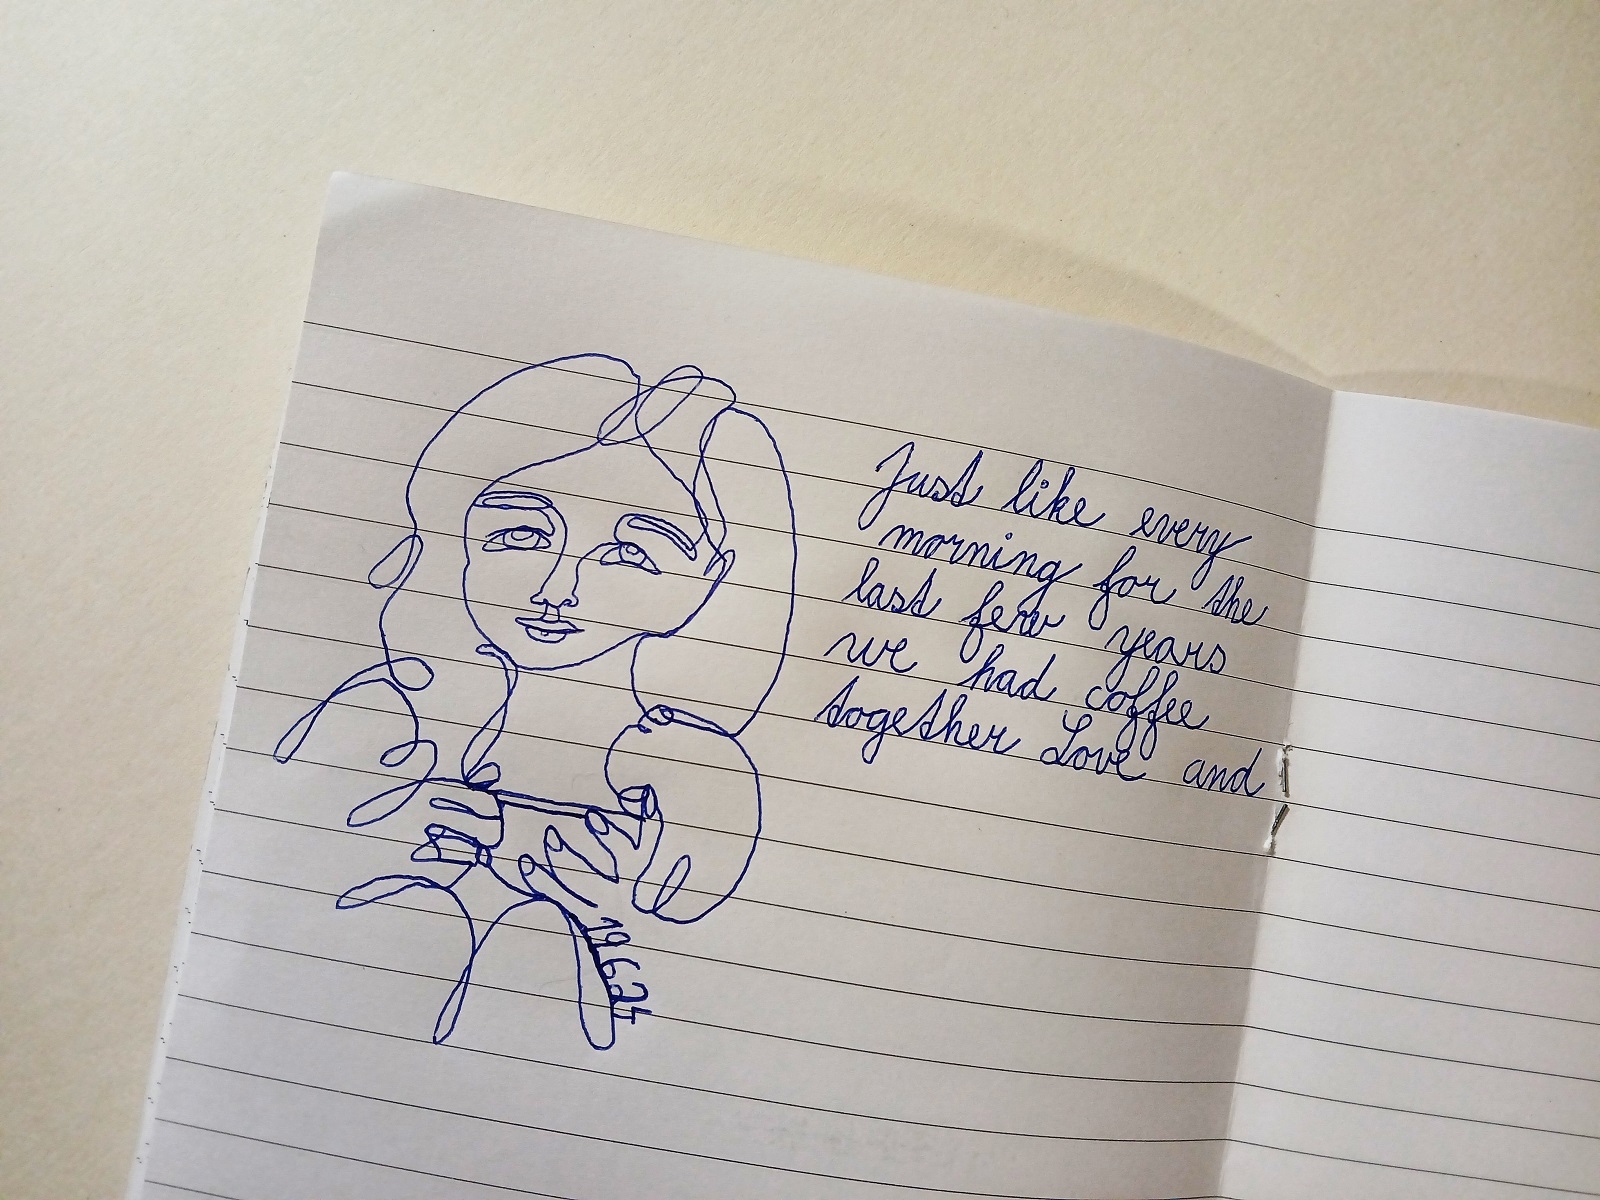 Just like every
morning for the
last few years
we had coffee
together Love and
19624